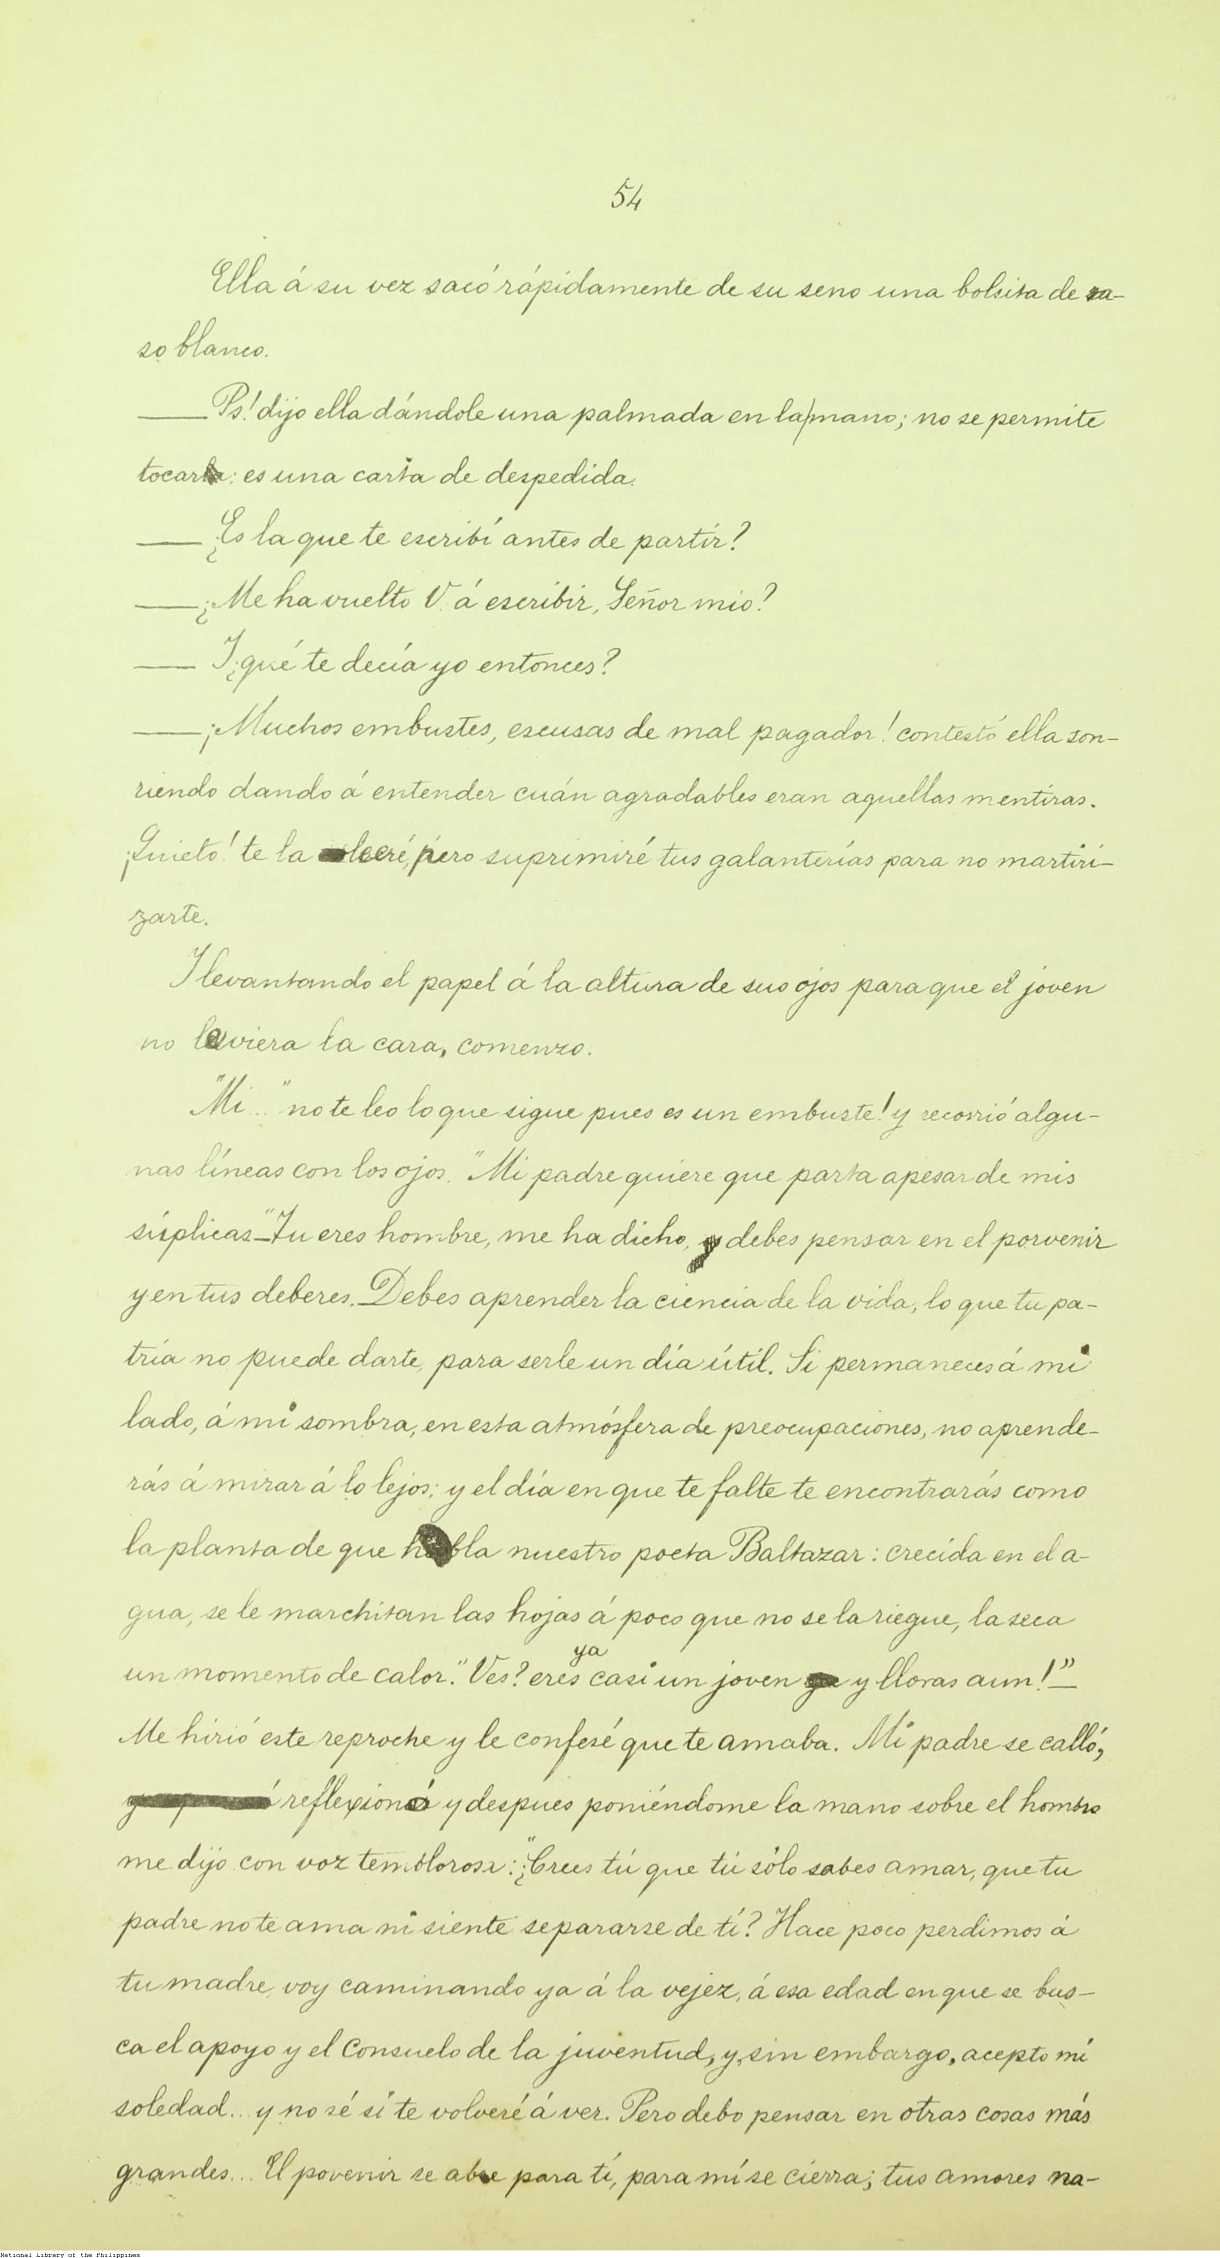 54
Ella á su vez sacó rápidamente de su seno una bolsita de ra-
so blanco.
—— Ps! dijo ella dándole una palmada en la mano; no se permite
tocarla: es una carta de despedida.
—— ¿Es la que te escribí antes de partir?
—— ¿Me ha vuelto V. á escribir, Señor mio?
—— Y ¿qué te decía yo entonces?
—— ¡Muchos embustes, escusas de mal pagador! contestó ella son-
riendo dando á entender cuán agradables eran aquellas mentiras.
¡Quieto! te la leeré, pero suprimiré tus galanterías para no martiri-
zarte.
Y levantando el papel á la altura de sus ojos para que el joven
no le viera la cara, comenzo.
"Mi..." no te leo lo que sigue pues es un embuste! y recorrió algu-
nas líneas con los ojos. "Mi padre quiere que parta apesar de mis
súplicas—"Tu eres hombre, me ha dicho, y debes pensar en el porvenir
y en tus deberes. Debes aprender la ciencia de la vida, lo que tu pa-
tria no puede darte, para serle un día útil. Si permaneces á mi
lado, á mi sombra, en esta atmósfera de preocupaciones, no aprende-
rás á mirar á lo lejos; y el día en que te falte te encontrarás como
la planta de que habla nuestro poeta Baltazar: crecida en el a-
gua, se le marchitan las hojas á poco que no se la riegue, la seca
un momento de calor." Ves? eres ya casi un joven y lloras aun!"—
Me hirió este reproche y le confesé que te amaba. Mi padre se calló,
reflexionó y despues poniéndome la mano sobre el hombro
me dijo con voz temblorosa: "¿Crees tú que tú sólo sabes amar, que tu
padre no te ama ni siente separarse de tí? Hace poco perdimos á
tu madre, voy caminando ya á la vejez, á esa edad en que se bus-
ca el apoyo y el consuelo de la juventud, y, sin embargo, acepto mi
soledad... y no sé si te volveré á ver. Pero debo pensar en otras cosas más
grandes... El povenir se abre para tí, para mí se cierra; tus amores na-
National Library of the Philippines